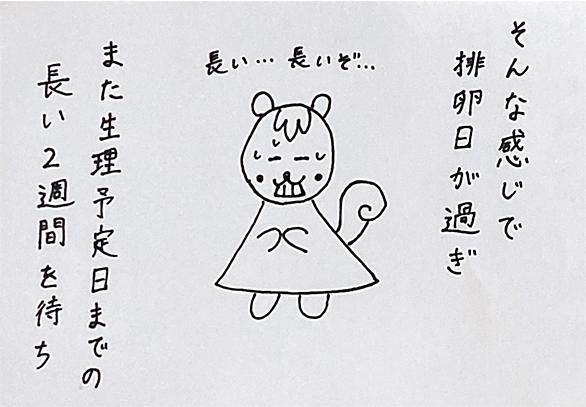 そんな感じで
排卵日が過ぎ
長い… 長いぞ…
また生理予定日までの
長い2週間を待ち